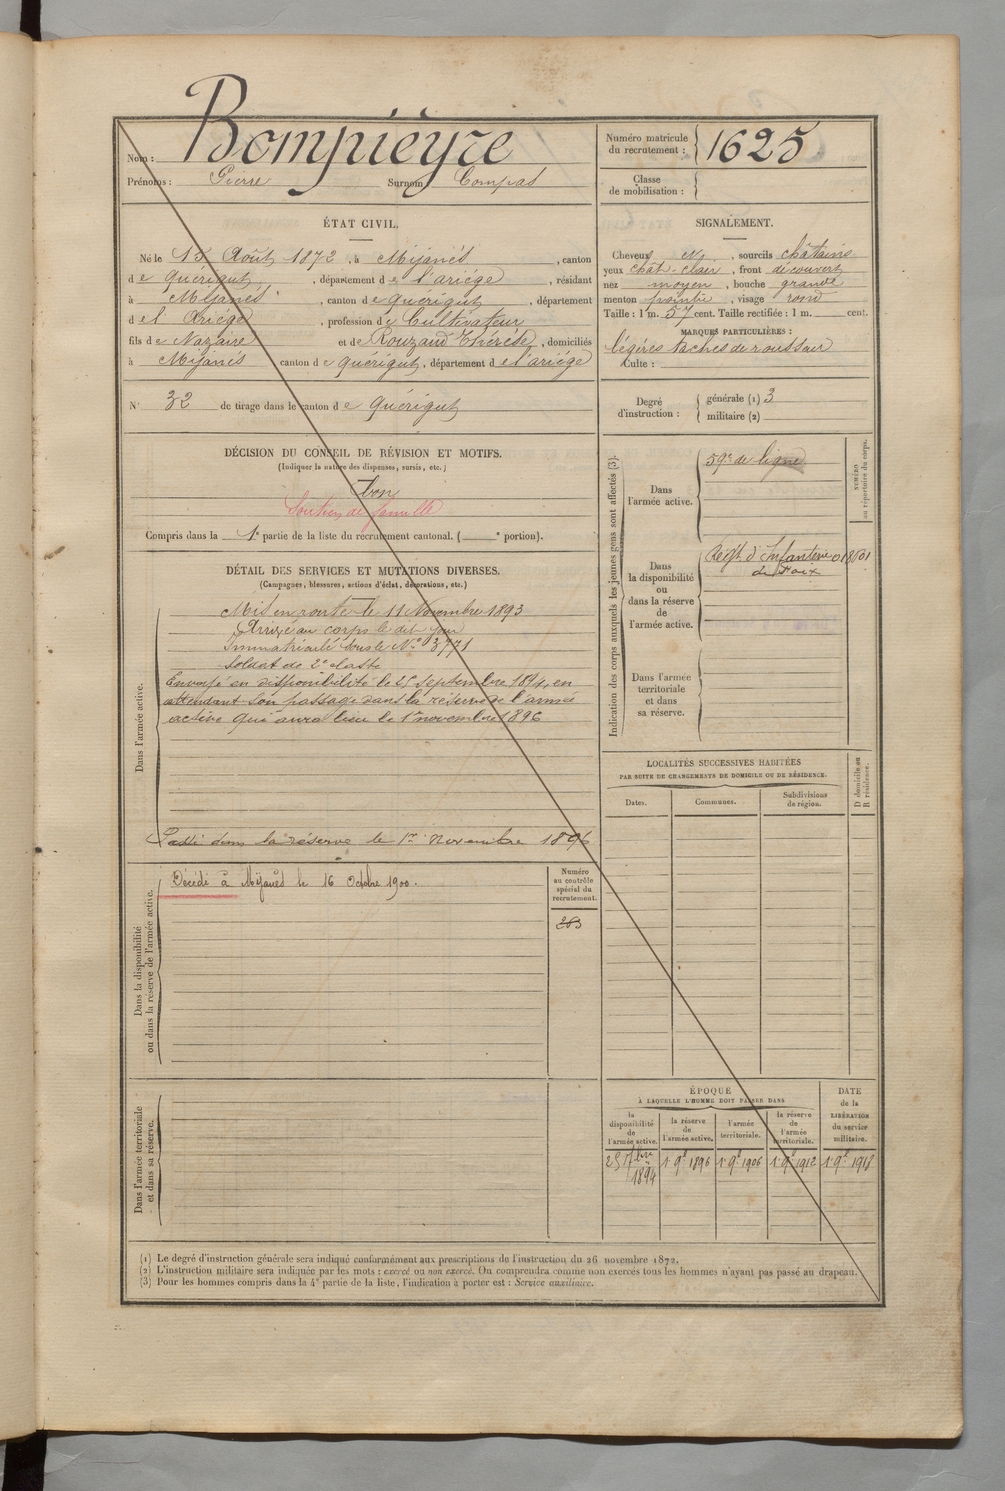 Nom : Bompièyre
Prénoms : Pierre Surnom Compas
Numéro matricule
du recrutement : 1625
Classe
de mobilisation :
ÉTAT CIVIL.
Né le 15 Août 1872, à Mijanès, canton
de Quérigut, département de l'ariége, résidant
à Mijanès, canton de Quérigut, département
de l'Ariége, profession de Cultivateur
fils de Nazaire et de Rouzaud Thérèse, domiciliés
à Mijanés canton de Quérigut, département de l'ariége
N° 32 de tirage dans le canton de Quérigut
SIGNALEMENT.
Cheveux N, sourcils châtains
yeux chât-clair, front découvert
nez moyen, bouche grande
menton pointu, visage rond
Taille : 1 m. 57 cent. Taille rectifiée : 1 m. cent.
MARQUES PARTICULIÈRES :
légères taches de rousseur
Culte :
Degré
d'instruction :
générale (1) 3
militaire (2)
DÉCISION DU CONSEIL DE RÉVISION ET MOTIFS.
(Indiquer la nature des dispenses, sursis, etc.)
bon
Soutien de famille
Compris dans la 1e partie de la liste du recrutement cantonal. ( e portion).
DÉTAIL DES SERVICES ET MUTATIONS DIVERSES.
(Campagnes, blessures, actions d'éclat, décorations, etc.)
Dans l'armée active.
Mis en route le 11 Novembre 1893
Arrivé au corps le dit jour
Immatriculé sous le No 3771
Soldat de 2e classe
Envoyé en disponibilité le 25 septembre 1894, en
attendant son passage dans la réserve de l'armée
active qui aura lieu le 1er novembre 1896
Passé dans la réserve le 1er Novembre 1896
Dans la disponibilité
ou dans la réserve de l'armée active.
Décédé à Mijanès le 16 Octobre 1900.
Numéro
au contrôle
spécial du
recrutement.
263
Dans l'armée territoriale
et dans sa réserve.
Indication des corps auxquels les jeunes gens sont affectés (3).
Dans
l'armée active.
59e de ligne
NUMÉRO
au répertoire du corps.
Dans
la disponibilité
ou
dans la réserve
de
l'armée active.
Régt d'Infanterie 01801
de Foix
Dans l'armée
territoriale
et dans
sa réserve.
LOCALITÉS SUCCESSIVES HABITÉES
PAR SUITE DE CHANGEMENTS DE DOMICILE OU DE RÉSIDENCE.
D domicile ou
R résidence.
Dates. Communes. Subdivisions
de région.
ÉPOQUE
À LAQUELLE L'HOMME DOIT PASSER DANS
la
disponibilité
de
l'armée active.
la réserve
de
l'armée active.
l'armée
territoriale.
la réserve
de
l'armée
territoriale.
DATE
de la
LIBÉRATION
du service
militaire.
25 7bre 1894
1 9e 1896
1 9e 1906
1 9e 1912
1 9e 1918
(1) Le degré d'instruction générale sera indiqué conformément aux prescriptions de l'instruction du 26 novembre 1872.
(2) L'instruction militaire sera indiquée par les mots : exercé ou non exercé. On comprendra comme non exercés tous les hommes n'ayant pas passé au drapeau.
(3) Pour les hommes compris dans la 4e partie de la liste, l'indication à porter est : Service auxiliaire.